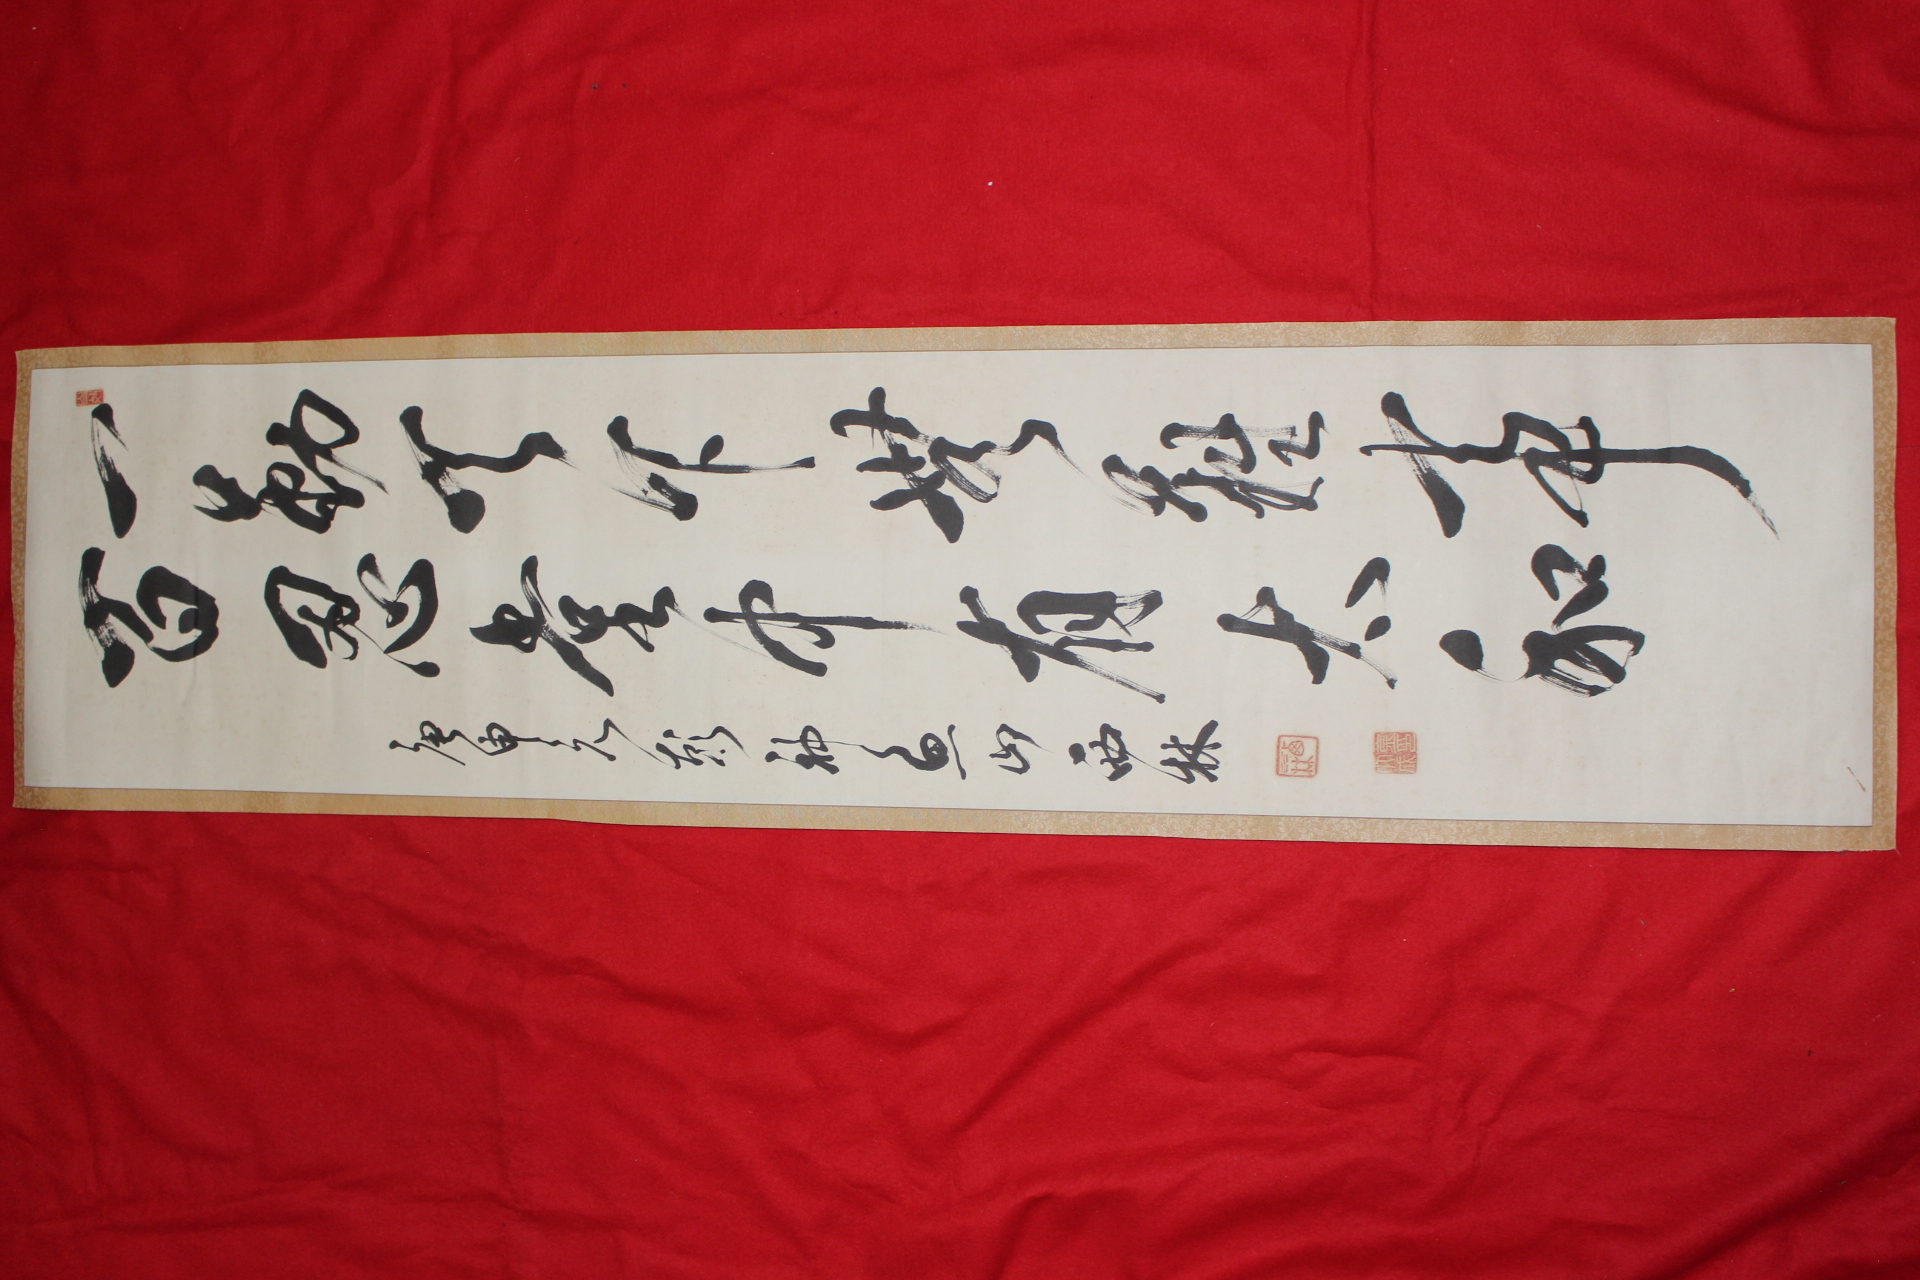 一勤天下無難事
百忍堂中有太和
庚申元
山西林